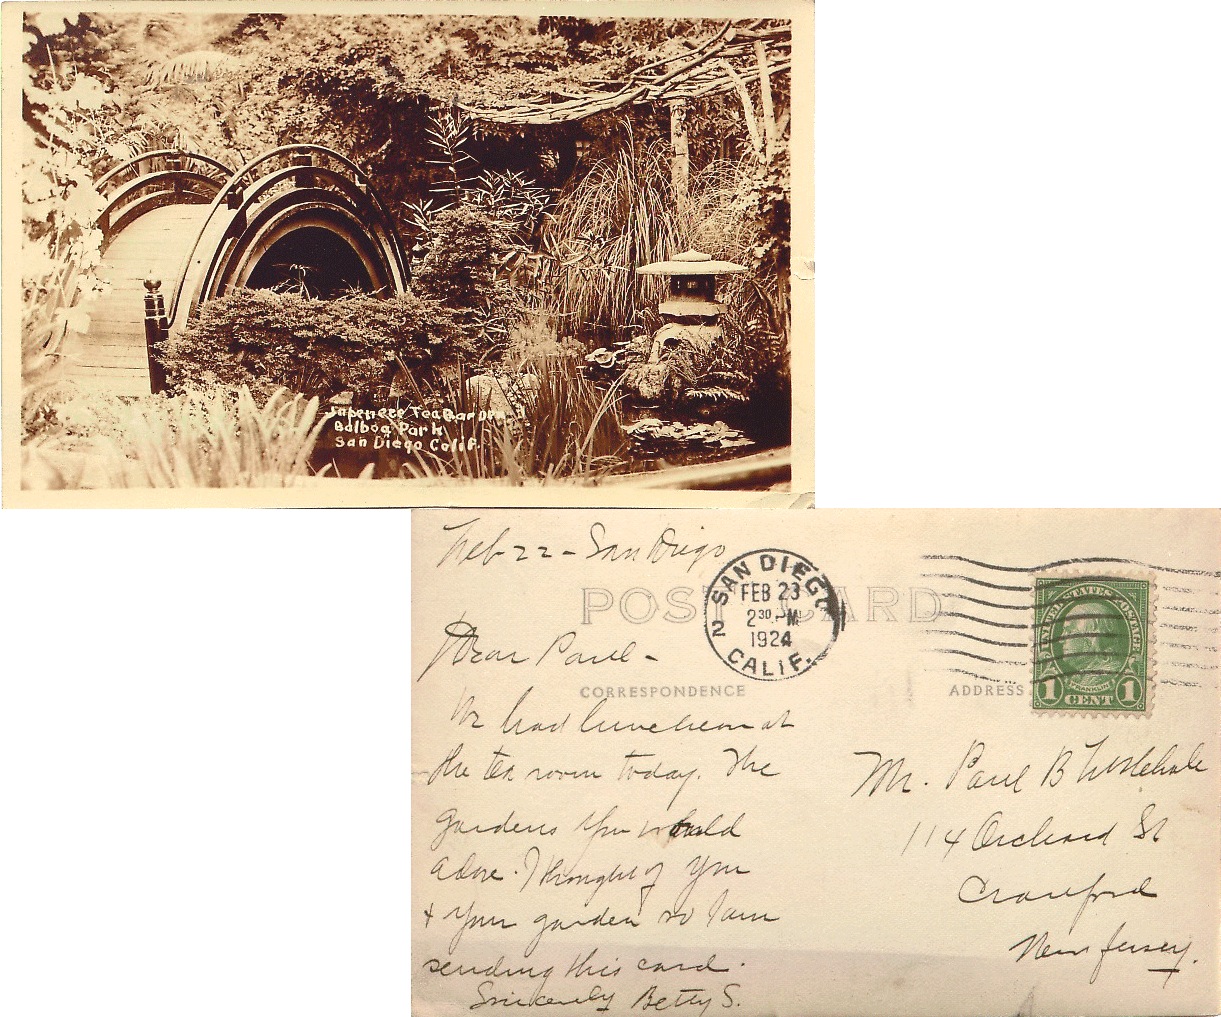 Japenese Tea Garden
Balboa Park
San Diego Calif.
Feb-22-San Diego
SAN DIEGO
FEB 23
2³⁰ PM
1924
2
CALIF.
POST CARD
UNITED STATES POSTAGE
FRANKLIN
1 CENT 1
Dear Paul-
CORRESPONDENCE
ADDRESS
We had luncheon at
the tea room today. The
gardens you would
adore. I thought of you
& your garden so I am
sending this card.
Sincerely Betty S.
Mr. Paul B
114 Orchard St
Cranford
New Jersey.